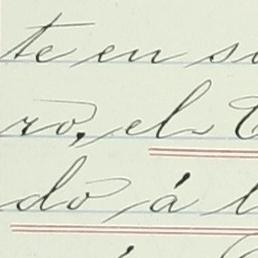 te en s
ro, el
do á